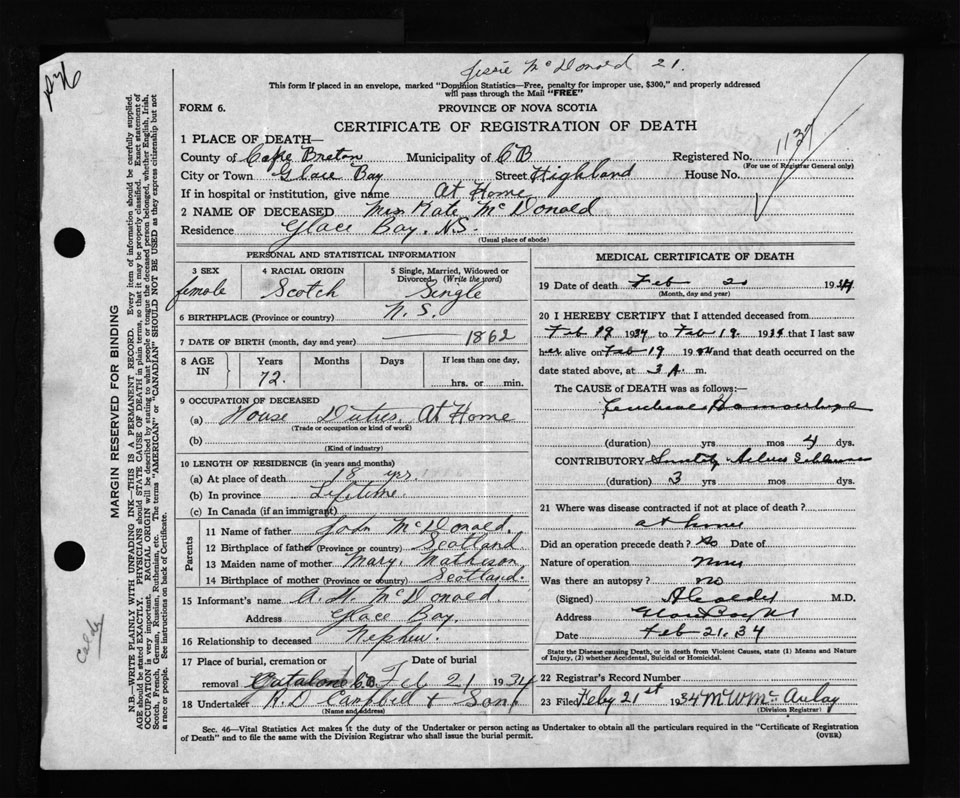 Jessie McDonald 21.
This form if placed in an envelope, marked "Dominion Statistics—Free, penalty for improper use, $300," and properly addressed
will pass through the Mail "FREE"
FORM 6.
PROVINCE OF NOVA SCOTIA
CERTIFICATE OF REGISTRATION OF DEATH
1137
1 PLACE OF DEATH—
County of Cape Breton Municipality of CB. Registered No.
(For use of Registrar General only)
City or Town Glace Bay Street Highland House No.
If in hospital or institution, give name At Home
2 NAME OF DECEASED Mrs Kate McDonald
Residence Glace Bay. N.S.
(Usual place of abode)
PERSONAL AND STATISTICAL INFORMATION
3 SEX 4 RACIAL ORIGIN 5 Single, Married, Widowed or
Divorced. (Write the word)
female Scotch Single
6 BIRTHPLACE (Province or country) N. S.
7 DATE OF BIRTH (month, day and year) 1862
8 AGE IN Years Months Days If less than one day,
72. hrs. or min.
9 OCCUPATION OF DECEASED
(a) House Duties. At Home
(Trade or occupation or kind of work)
(b)
(Kind of industry)
10 LENGTH OF RESIDENCE (in years and months)
(a) At place of death 18 yrs.
(b) In province Lifetime.
(c) In Canada (if an immigrant)
Parents
11 Name of father John McDonald.
12 Birthplace of father (Province or country) Scotland
13 Maiden name of mother Mary. Mathison
14 Birthplace of mother (Province or country) Scotland.
15 Informant's name A. H. McDonald.
Address Glace Bay.
16 Relationship to deceased Nephew.
17 Place of burial, cremation or Date of burial
removal Catalone C.B. Feb 21 1934
18 Undertaker R. D Campbell & Sons
(Name and address)
MEDICAL CERTIFICATE OF DEATH
19 Date of death Feb 20 1934
(Month, day and year)
20 I HEREBY CERTIFY that I attended deceased from
Feb 19 1934 to Feb 19. 1934 that I last saw
her alive on Feb 19 1934 and that death occurred on the
date stated above, at 3 A. m.
The CAUSE of DEATH was as follows:—
Cerebral Hemorrhage
(duration) yrs mos 4 dys.
CONTRIBUTORY
(duration) 3 yrs mos dys.
21 Where was disease contracted if not at place of death?
at home
Did an operation precede death? No Date of
Nature of operation None
Was there an autopsy? no
(Signed) A Calder M.D.
Address Glace Bay NS
Date Feb 21. 34
State the Disease causing Death, or in death from Violent Causes, state (1) Means and Nature
of Injury, (2) whether Accidental, Suicidal or Homicidal.
22 Registrar's Record Number
23 Filed Feby 21st 1934 M W McAulay
(Division Registrar)
Sec. 46—Vital Statistics Act makes it the duty of the Undertaker or person acting as Undertaker to obtain all the particulars required in the "Certificate of Registration
of Death" and to file the same with the Division Registrar who shall issue the burial permit.
(OVER)
MARGIN RESERVED FOR BINDING
N.B.—WRITE PLAINLY WITH UNFADING INK—THIS IS A PERMANENT RECORD. Every item of information should be carefully supplied.
AGE should be stated EXACTLY. PHYSICIANS should STATE CAUSE OF DEATH in plain terms, so that it may be properly classified. Exact statement of
OCCUPATION is very important. RACIAL ORIGIN will be described by stating to what people or tongue the deceased person belonged, whether English, Irish,
Scotch, French, German, Russian, Ruthenian, etc. The terms "AMERICAN" or "CANADIAN" SHOULD NOT BE USED as they express citizenship but not
a race or people. See instructions on back of Certificate.
Calder